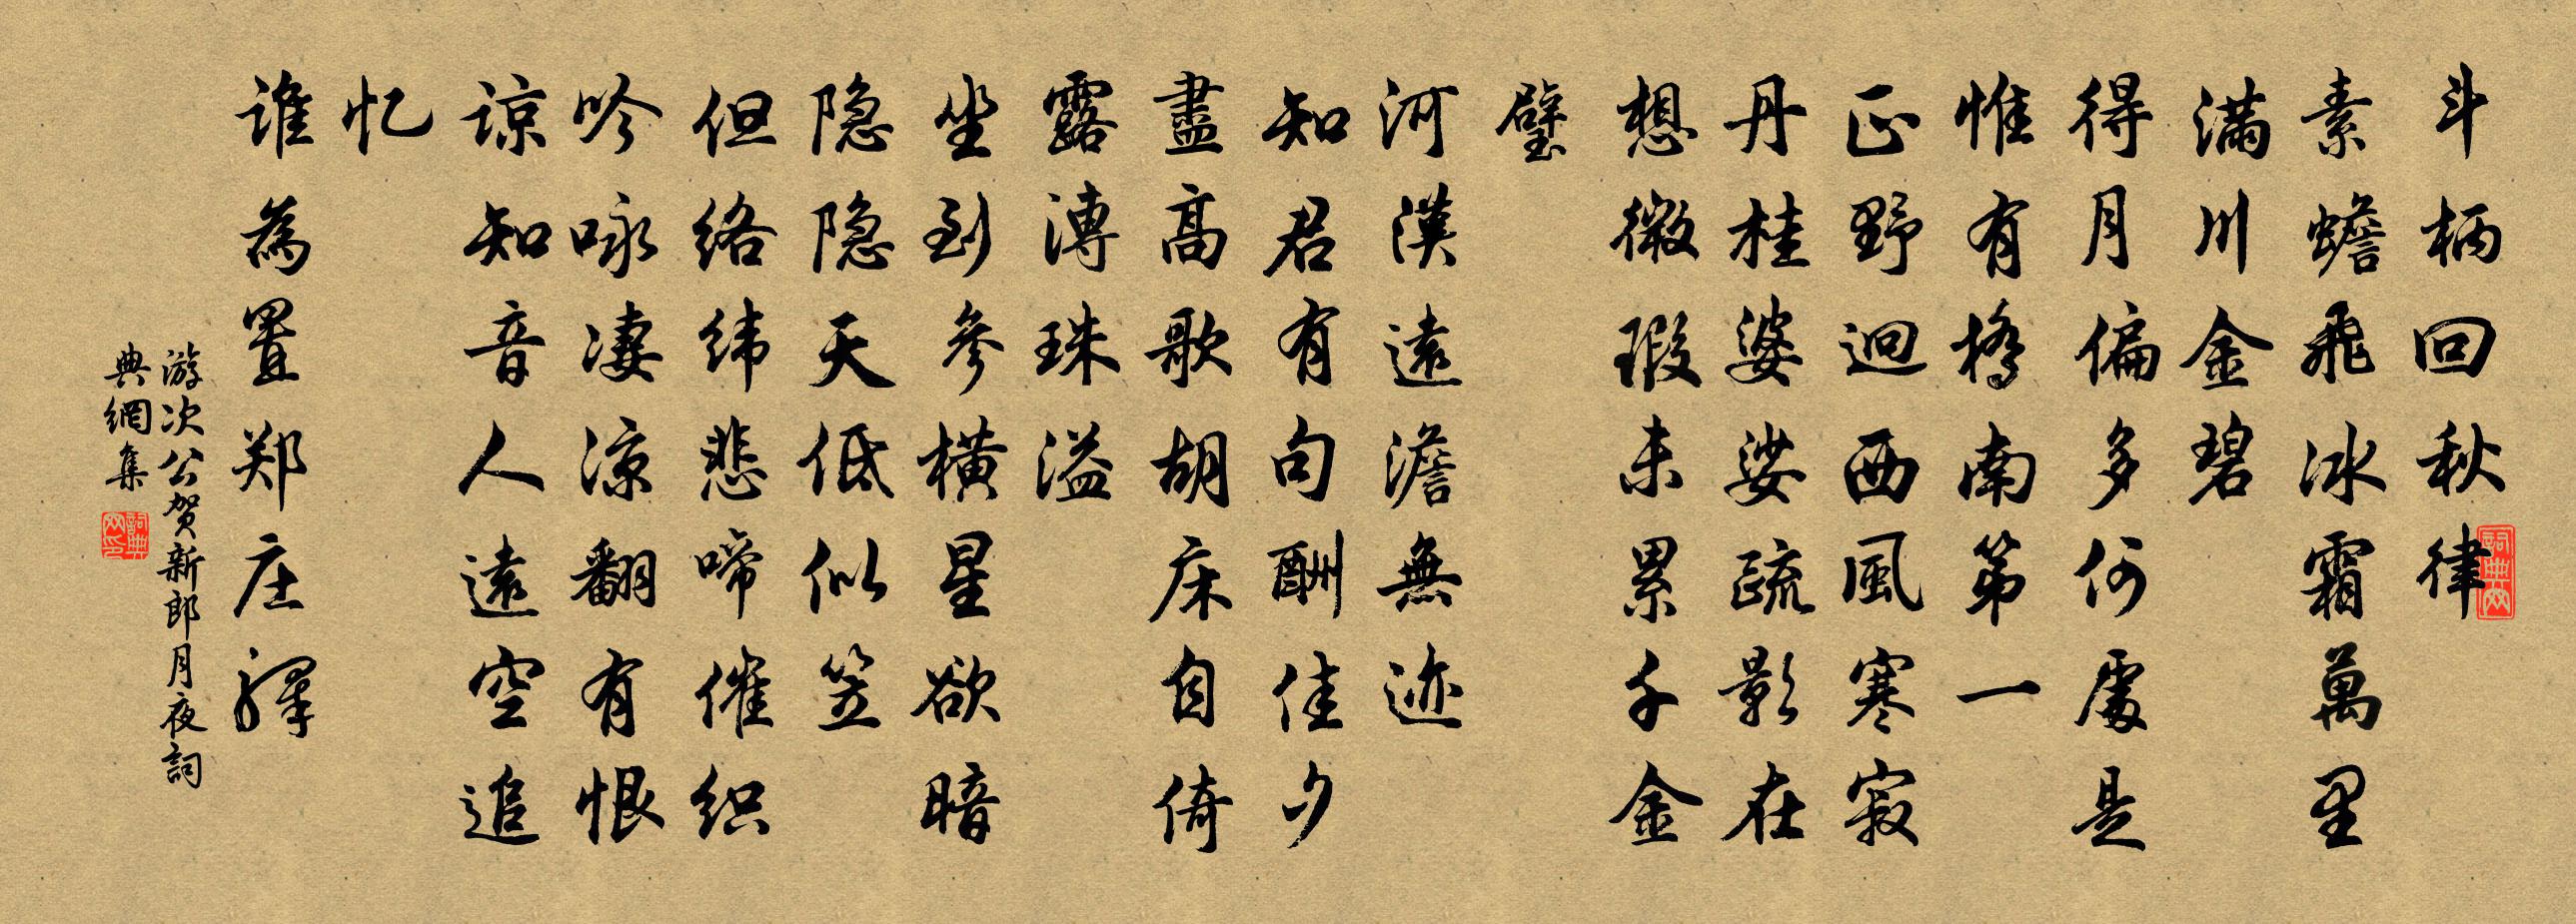 斗柄回秋律
素蟾飛冰霜萬里
满川金碧
得月偏多何處是
惟有橋南第一
正野迥西風寒寂
丹桂婆娑疏影在
想微瑕未累千金
璧
河漢遠澹無迹
知君有句酬佳夕
盡高歌胡床自倚
露漙珠溢
坐到參橫星欲暗
隐隐天低似笠
但络纬悲啼催织
吟咏凄凉翻有恨
谅知音人遠空追
忆
谁為置郑庄驛
游次公贺新郎月夜詞
典網集
詞典网
詞典网印